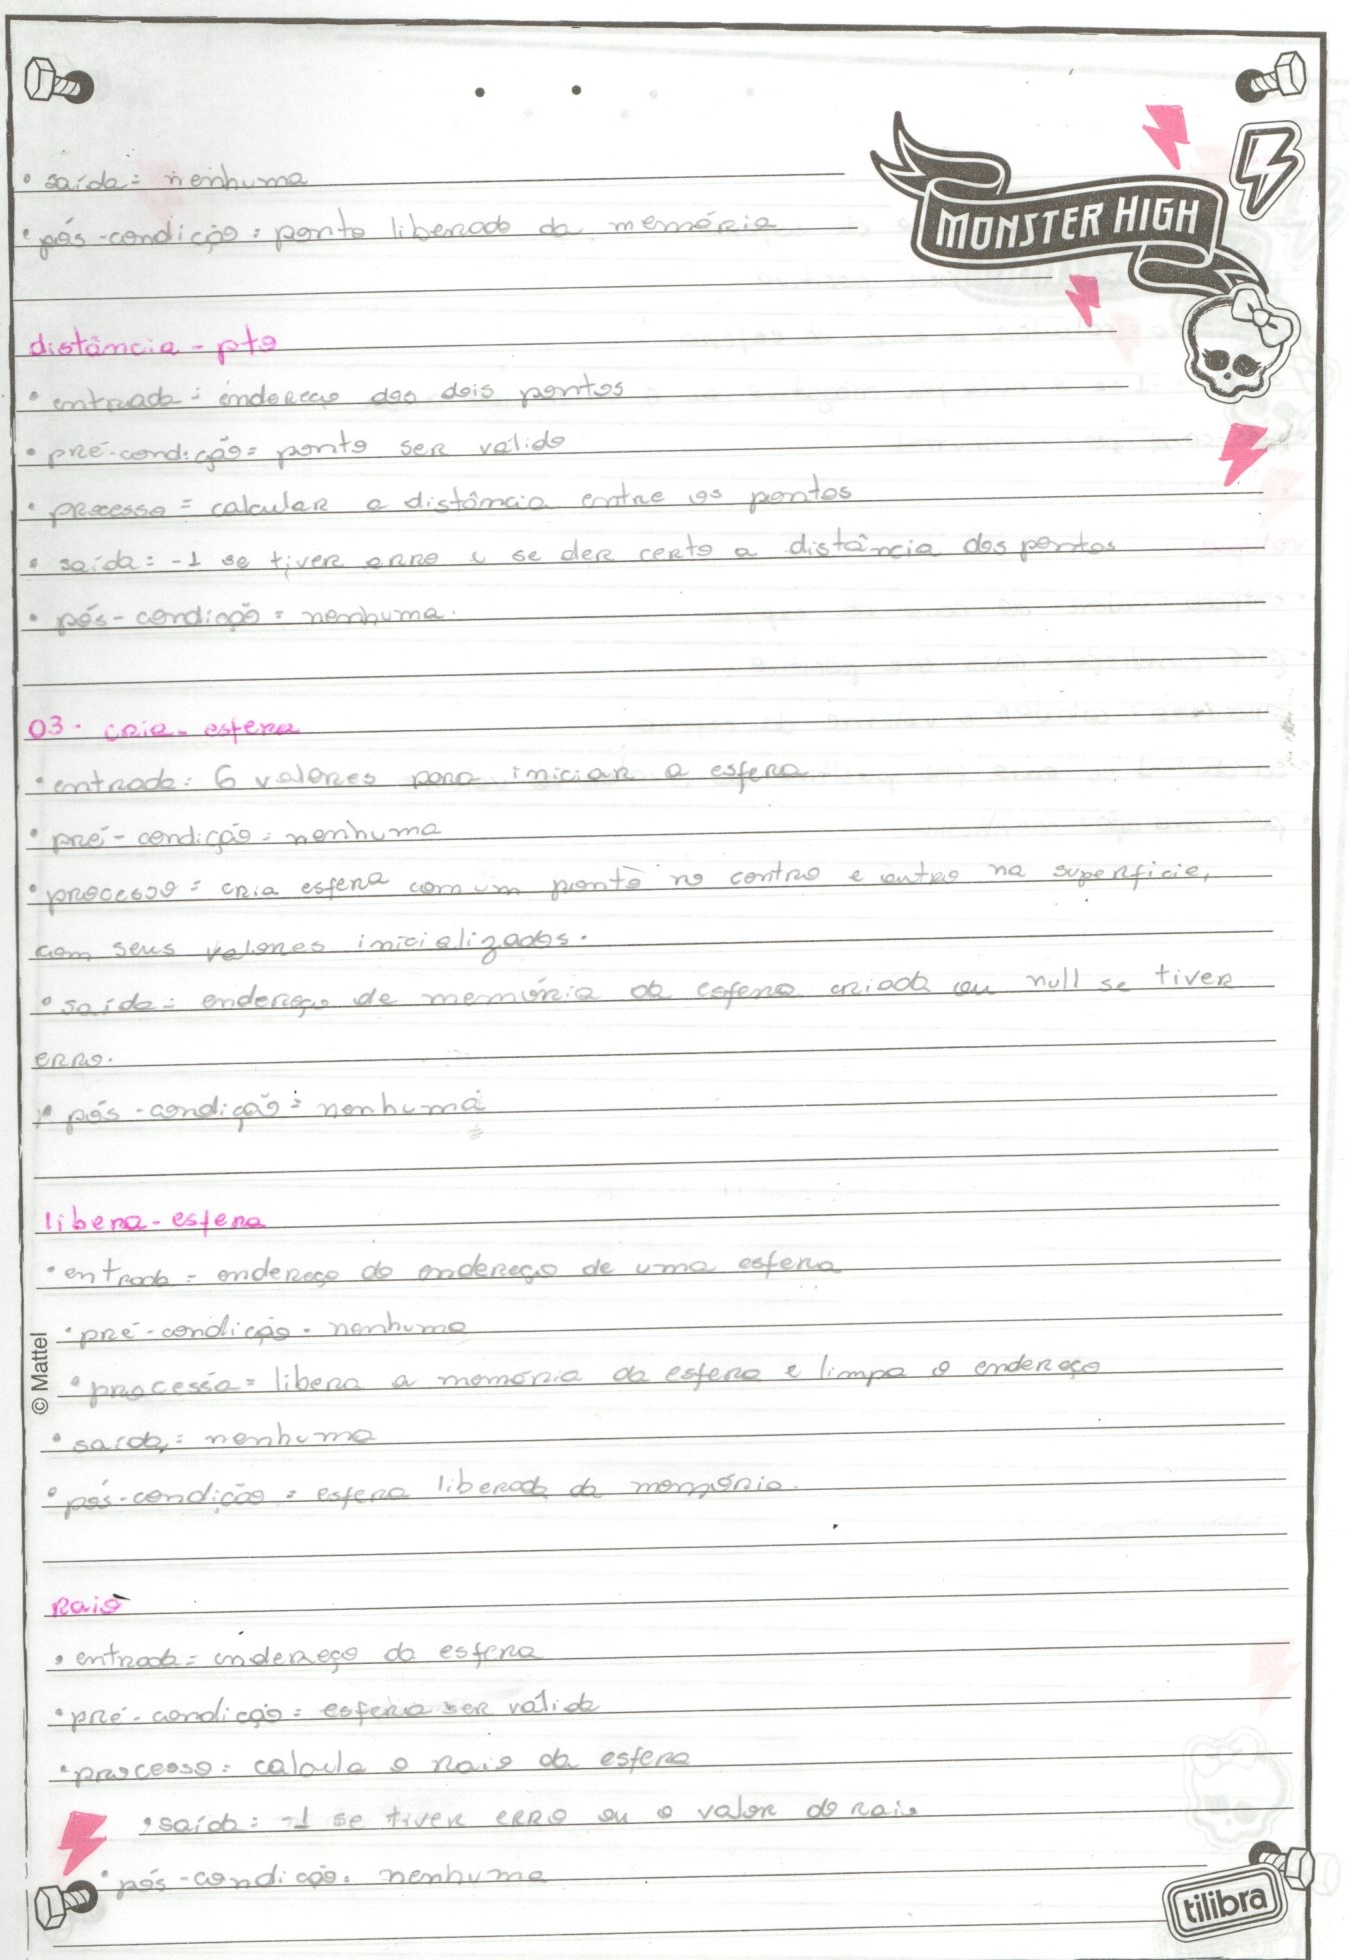 • saída: nenhuma
• pós-condição: ponto liberado da memória
MONSTER HIGH
distância-pto
• entrada: endereço dos dois pontos
• pré-condição: ponto ser válido
• processo: calcular a distância entre os pontos
• saída: -1 se tiver erro e se der certo a distância dos pontos
• pós-condição: nenhuma.
03. cria-esfera
• entrada: 6 valores para iniciar a esfera
• pré-condição: nenhuma
• processo: cria esfera com um ponto no centro e outro na superfície,
com seus valores inicializados.
• saída: endereço de memória da esfera criada ou null se tiver
erro.
• pós-condição: nenhuma
libera-esfera
• entrada: endereço do endereço de uma esfera
• pré-condição: nenhuma
• processo: libera a memória da esfera e limpa o endereço
• saída: nenhuma
• pós-condição: esfera liberada da memória.
raio
• entrada: endereço da esfera
• pré-condição: esfera ser válida
• processo: calcula o raio da esfera
• saída: -1 se tiver erro ou o valor do raio
• pós-condição: nenhuma
© Mattel
tilibra